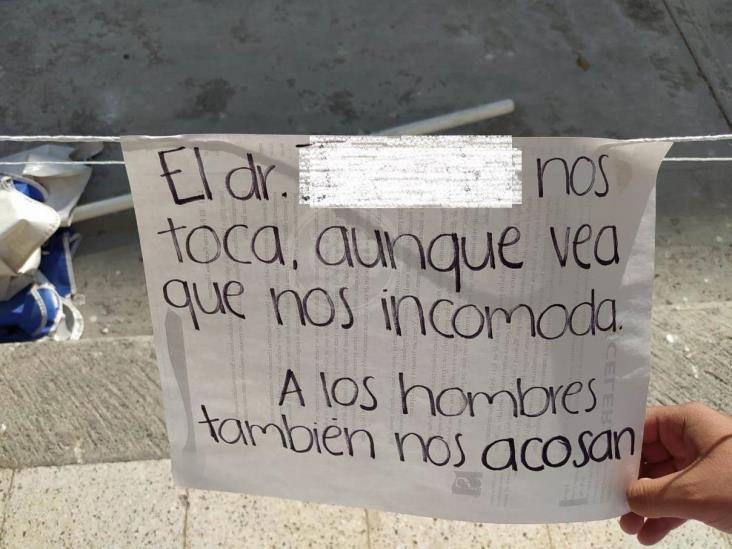 El dr. nos
toca, aunque vea
que nos incomoda.
A los hombres
también nos acosan